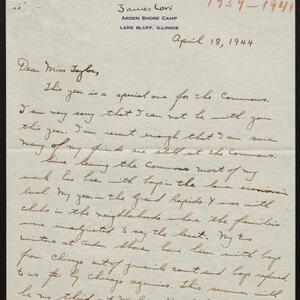 James Love
1939-1941
ARDEN SHORE CAMP
LAKE BLUFF, ILLINOIS
April 18, 1944
Dear Miss Taylor,
This year is a special one for the Commons.
I am very sorry that I can not be with you
this year. I am recent enough that I am sure
many of my friends are still at the Commons.
Since leaving the Commons most of my
work has been with boys in the low economic
level. My year in the Grand Rapids Y was with
clubs in the neighborhoods where the families
were unadjusted to say the least. My two
winters at Arden Shore have been with boys
from Chicago out of juvenile court and boys referred
to us by Chicago agencies. This summer will
be my third at